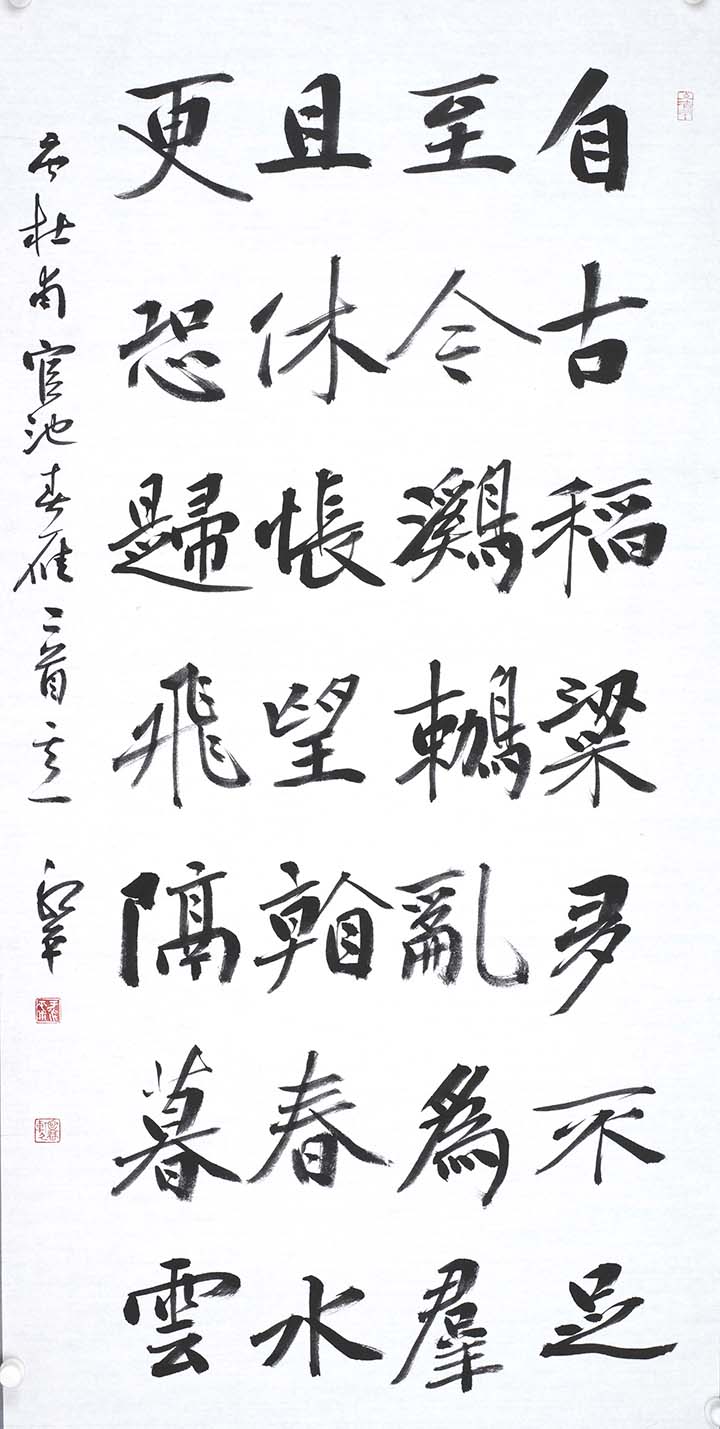 自古稻粱多不足
至今鸂鷘亂爲羣
且休悵望看春水
更恐歸飛隔暮雲
杜甫官池春雁二首其一